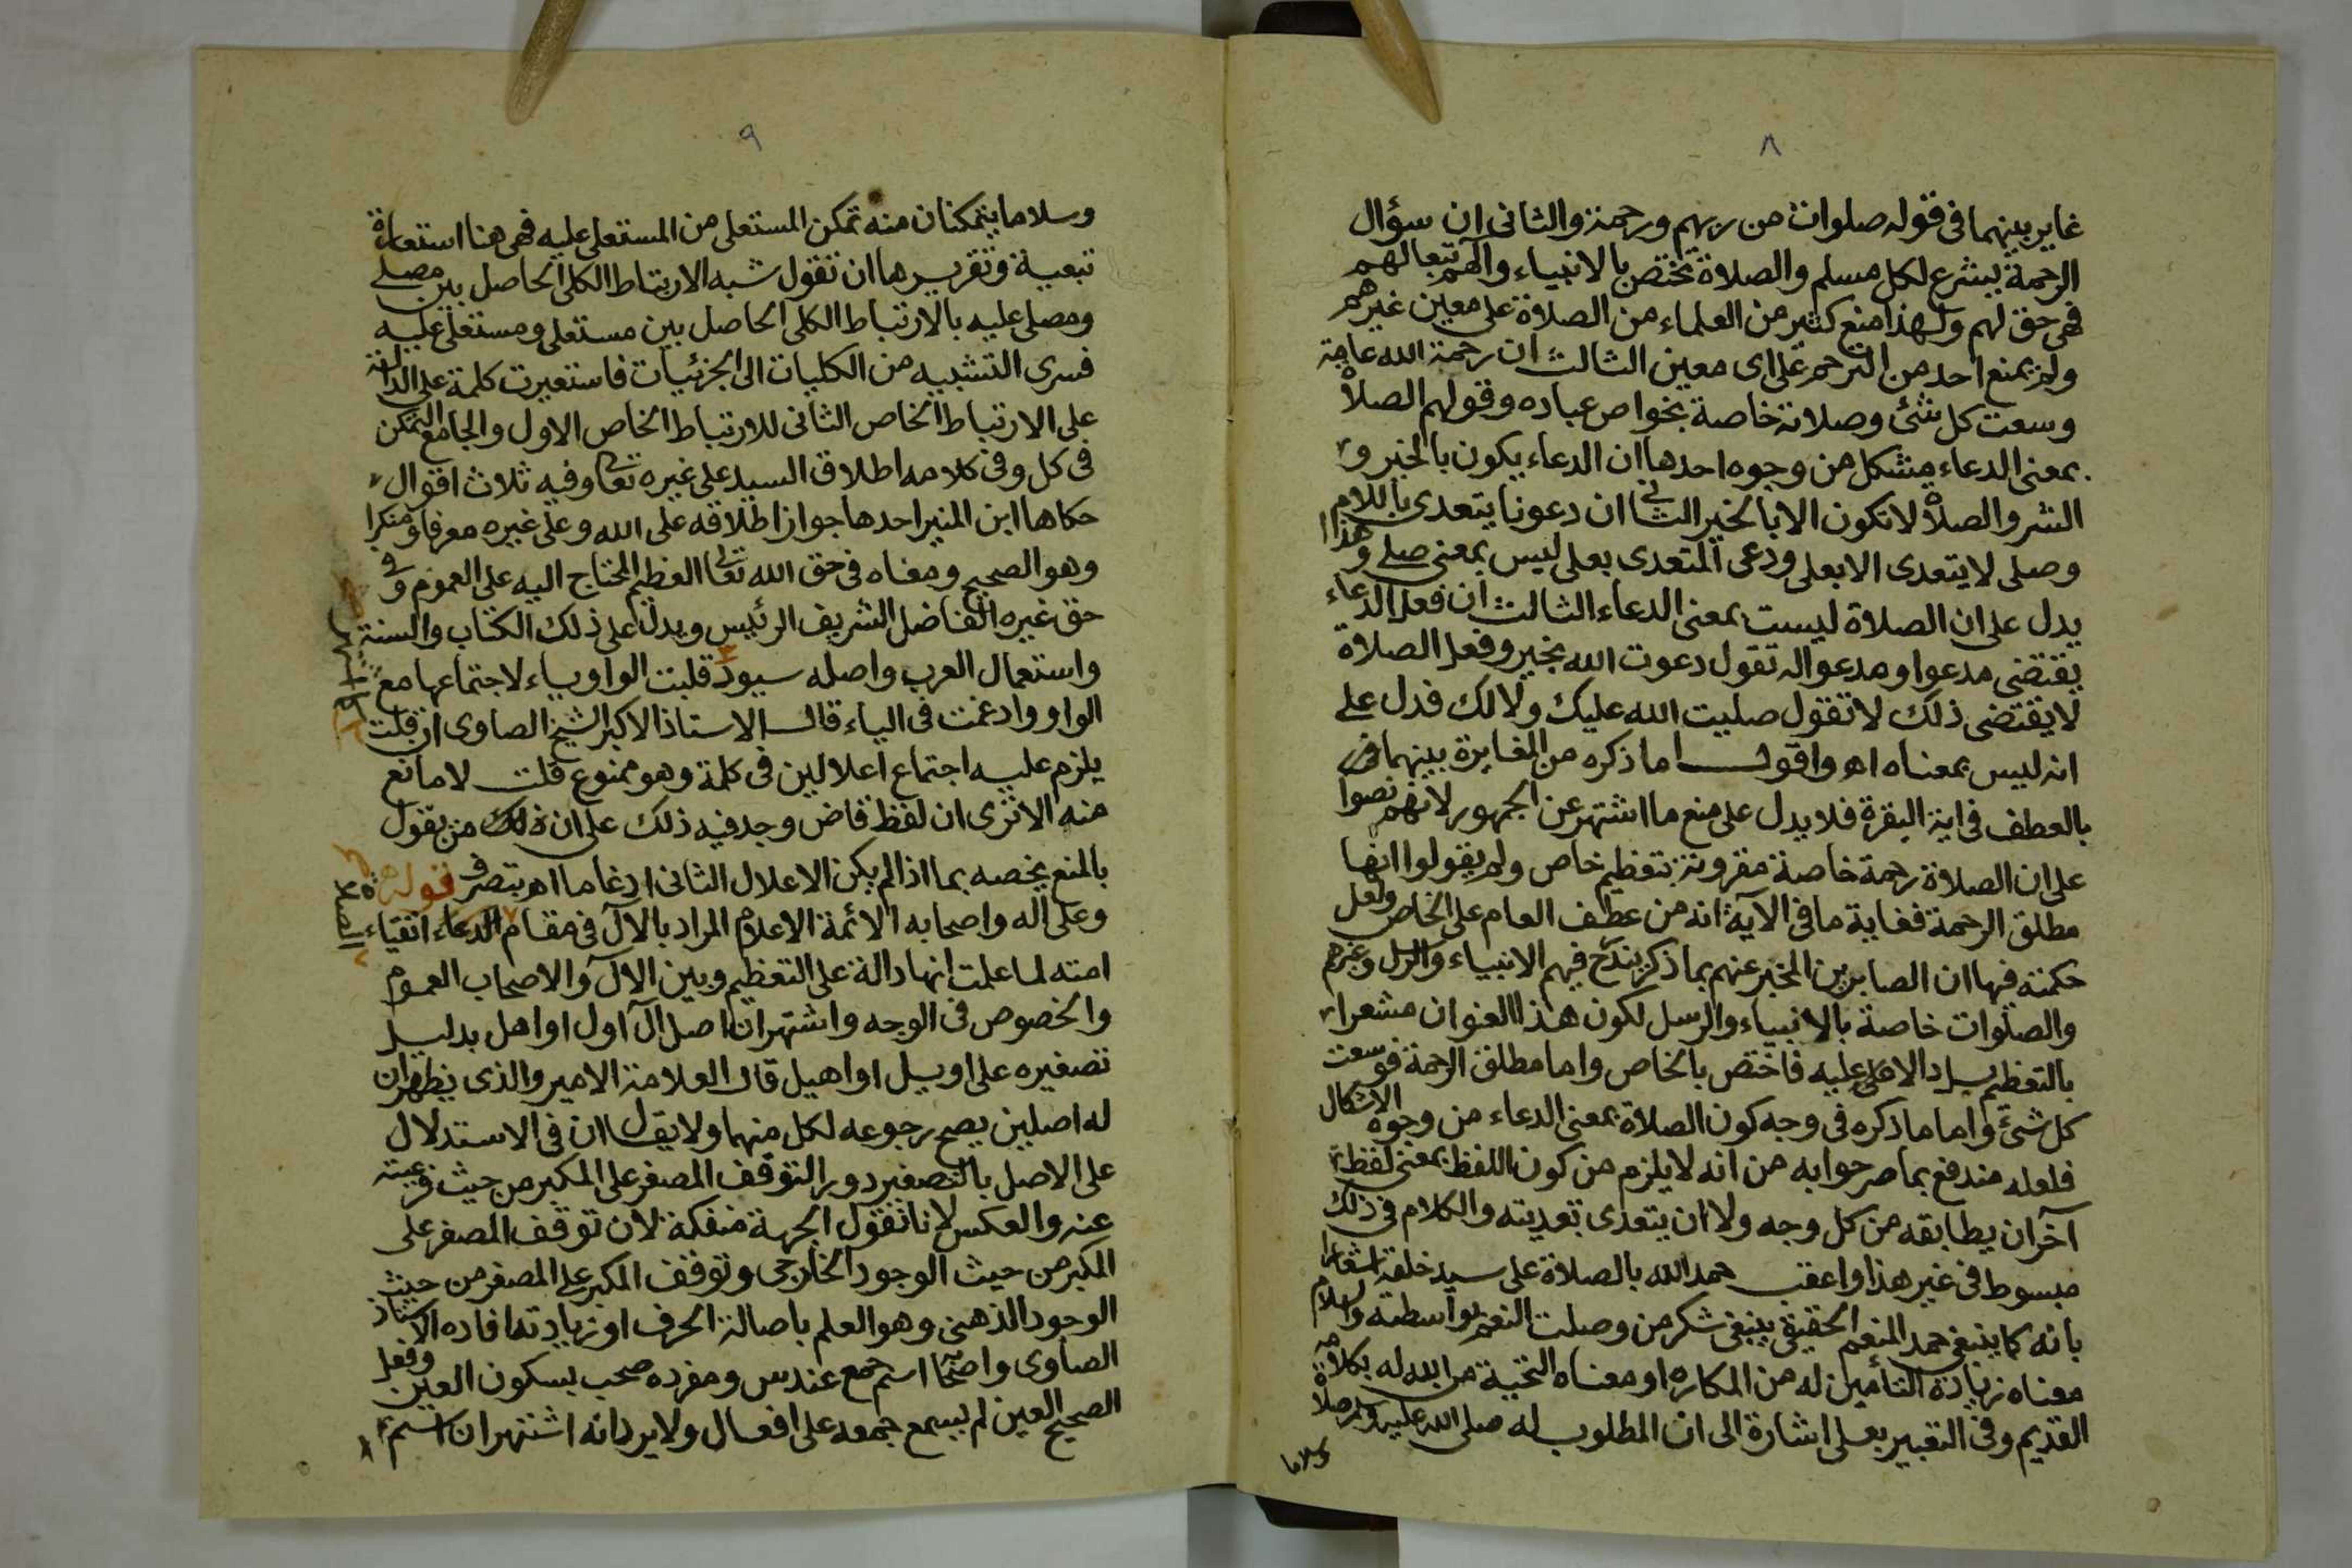 ٨
غاير بينهما فى قوله صلوات من ربهم ورحمة والثانى ان سؤال
الرحمة يشرع لكل مسلم والصلاة تختص بالانبياء وآلهم تبعا لهم
فهى حق لهم ولهذا منع كثير من العلماء من الصلاة على معين غيرهم
ولم يمنع احد من الترحم على اى معين الثالث ان رحمة الله عامة
وسعت كل شئ وصلاته خاصة بخواص عباده وقولهم الصلاة
بمعنى الدعاء مشكل من وجوه احدها ان الدعاء يكون بالخير و
الشر والصلاة لا تكون الا بالخير الثانى ان دعونا يتعدى باللام
وصلى لا يتعدى الا بعلى ودعى المتعدى بعلى ليس بمعنى صلى وهذا
يدل على ان الصلاة ليست بمعنى الدعاء الثالث ان فعل الدعاء
يقتضى مدعوا ومدعوا له تقول دعوت الله بخير وفعل الصلاة
لا يقتضى ذلك لا تقول صليت الله عليك ولا لك فدل على
انه ليس بمعناه اه واقول اما ذكره من المغايرة بينهما فى
بالعطف فى اية البقرة فلا يدل على منع ما اشتهر عن الجمهور لانهم نصوا
على ان الصلاة رحمة خاصة مقرونة بتعظيم خاص ولم يقولوا انها
مطلق الرحمة فغاية ما فى الآية انه من عطف العام على الخاص ولعل
حكمته فيها ان الصابرين المخبر عنهم بما ذكر يندرج فيهم الانبياء والرسل وغيرهم
والصلوات خاصة بالانبياء والرسل لكون هذا العنوان مشعرا
بالتعظيم عليه فاختص بالخاص واما مطلق الرحمة فوسعت
كل شئ واما ما ذكره فى وجه كون الصلاة بمعنى الدعاء من وجوه الاشكال
فلعله مندفع بما مر جوابه من انه لا يلزم من كون اللفظ بمعنى لفظ
آخر ان يطابقه من كل وجه ولا ان يتعدى تعديته والكلام فى ذلك
مبسوط فى غير هذا واعقب حمد الله بالصلاة على سيد خلقه اشعارا
بانه كما ينبغى حمد المنعم الحقيقى ينبغى شكر من وصلت النعم بواسطته والسلام
معناه زيادة التأمين له من المكاره او معناه التحية من الله له بكلامه
القديم وفى التعبير بعلى اشارة الى ان المطلوب له صلى الله عليه وسلم صلاة
وسلاما
٩
وسلاما يتمكنان منه تمكن المستعلى من المستعلى عليه فهى هنا استعارة
تبعية وتقريرها ان تقول شبه الارتباط الكلى الحاصل بين مصلى
ومصلى عليه بالارتباط الكلى الحاصل بين مستعلى ومستعلى عليه
فسرى التشبيه من الكليات الى الجزئيات فاستعيرت كلمة على الدالة
على الارتباط الخاص الثانى للارتباط الخاص الاول والجامع التمكن
فى كل وفى كلامه اطلاق السيد على غيره تعالى وفيه ثلاث اقوال
حكاها ابن المنير احدها جواز اطلاقه على الله وعلى غيره معرفا ومنكرا
وهو الصحيح ومعناه فى حق الله تعالى العظيم المحتاج اليه على العموم وفى
حق غيره الفاضل الشريف الرئيس ويدل على ذلك الكتاب والسنة
واستعمال العرب واصله سيود قلبت الواو ياء لاجتماعها مع
الواو وادغمت فى الياء قال الاستاذ الاكبر الشيخ الصاوى ان قلت
يلزم عليه اجتماع اعلالين فى كلمة وهو ممنوع قلت لا مانع
منه الا ترى ان لفظ قاض وجد فيه ذلك على ان ذلك من يقول
بالمنع يخصه بما اذا لم يكن الاعلال الثانى ادغاما اه بتصرف قوله
وعلى اله واصحابه الائمة الاعلام المراد بالآل فى مقام الدعاء اتقياء
امته لما علمت انها دالة على التعظيم وبين الآل والاصحاب العموم
والخصوص فى الوجه واشتهر ان اصل آل اول او اهل بدليل
تصغيره على اويل او اهيل قال العلامة الامير والذى يظهر ان
له اصلين يصح رجوعه لكل منهما ولا يقال ان فى الاستدلال
على الاصل بالتصغير دور التوقف المصغر على المكبر من حيث فرعيته
عنه والعكس لانا نقول الجهة منفكة لان توقف المصغر على
المكبر من حيث الوجود الخارجى وتوقف المكبر على المصغر من حيث
الوجود الذهنى وهو العلم باصالة الحرف او زيادته افاده الاستاذ
الصاوى واصحاب اسم جمع عند س ومفرده صحب بسكون العين وفعل
الصحيح العين لم يسمع جمعه على افعال ولا يرد انه اشتهر ان اسم